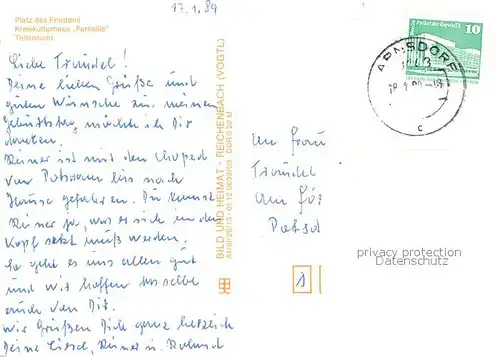 17.1.89
Platz des Friedens
Kreiskulturhaus „Parksäle"
Teilansicht
Liebe Traudel!
Deine lieben Grüße und
guten Wünsche zu meinem
Geburtstag, möchte ich Dir
danken.
Reiner ist mit dem Moped
von Potsdam bis nach
Hause gefahren. Du kennst
Reiner ja, was er sich in den
Kopf setzt muß werden.
So geht es uns allen gut
und wir hoffen dasselbe
auch von Dir.
Wir grüßen Dich ganz herzlich
Deine Liesel, Reiner u. Roland
BILD UND HEIMAT · REICHENBACH (VOGTL)
DDR 0,20 M
10
ARNSDORF
c
An Frau
Traudel
Am
Potsd
privacy protection
Datenschutz